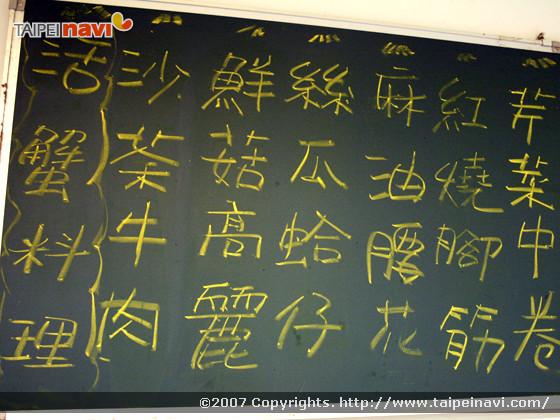 TAIPEI navi
芹菜中卷
紅燒腳筋
麻油腰花
絲瓜蛤仔
鮮菇高麗
沙茶牛肉
活蟹料理
©2007 Copyrights. http://www.taipeinavi.com/